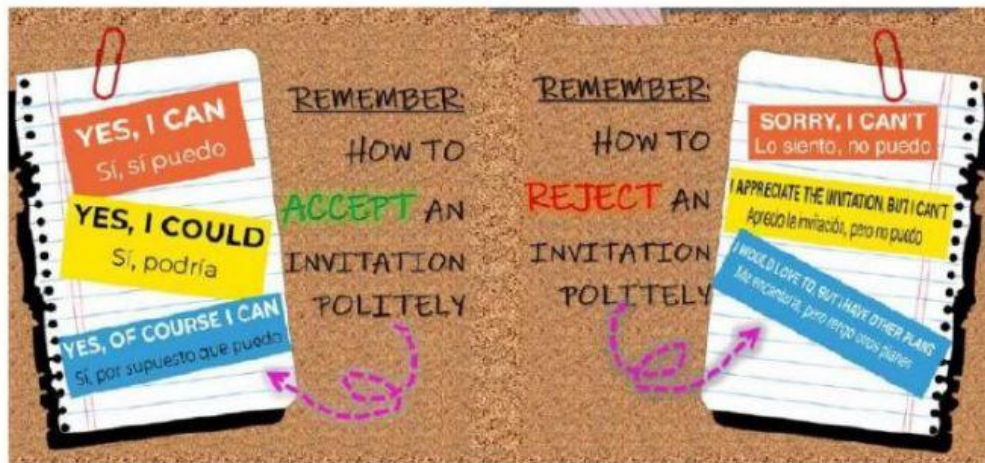 YES, I CAN
Sí, sí puedo
YES, I COULD
Sí, podría
YES, OF COURSE I CAN
Sí, por supuesto que puedo
REMEMBER:
HOW TO
ACCEPT AN
INVITATION
POLITELY
REMEMBER:
HOW TO
REJECT AN
INVITATION
POLITELY
SORRY, I CAN'T
Lo siento, no puedo
I APPRECIATE THE INVITATION, BUT I CAN'T
Aprecio la invitación, pero no puedo
I WOULD LOVE TO, BUT I HAVE OTHER PLANS
Me encantaría, pero tengo otros planes